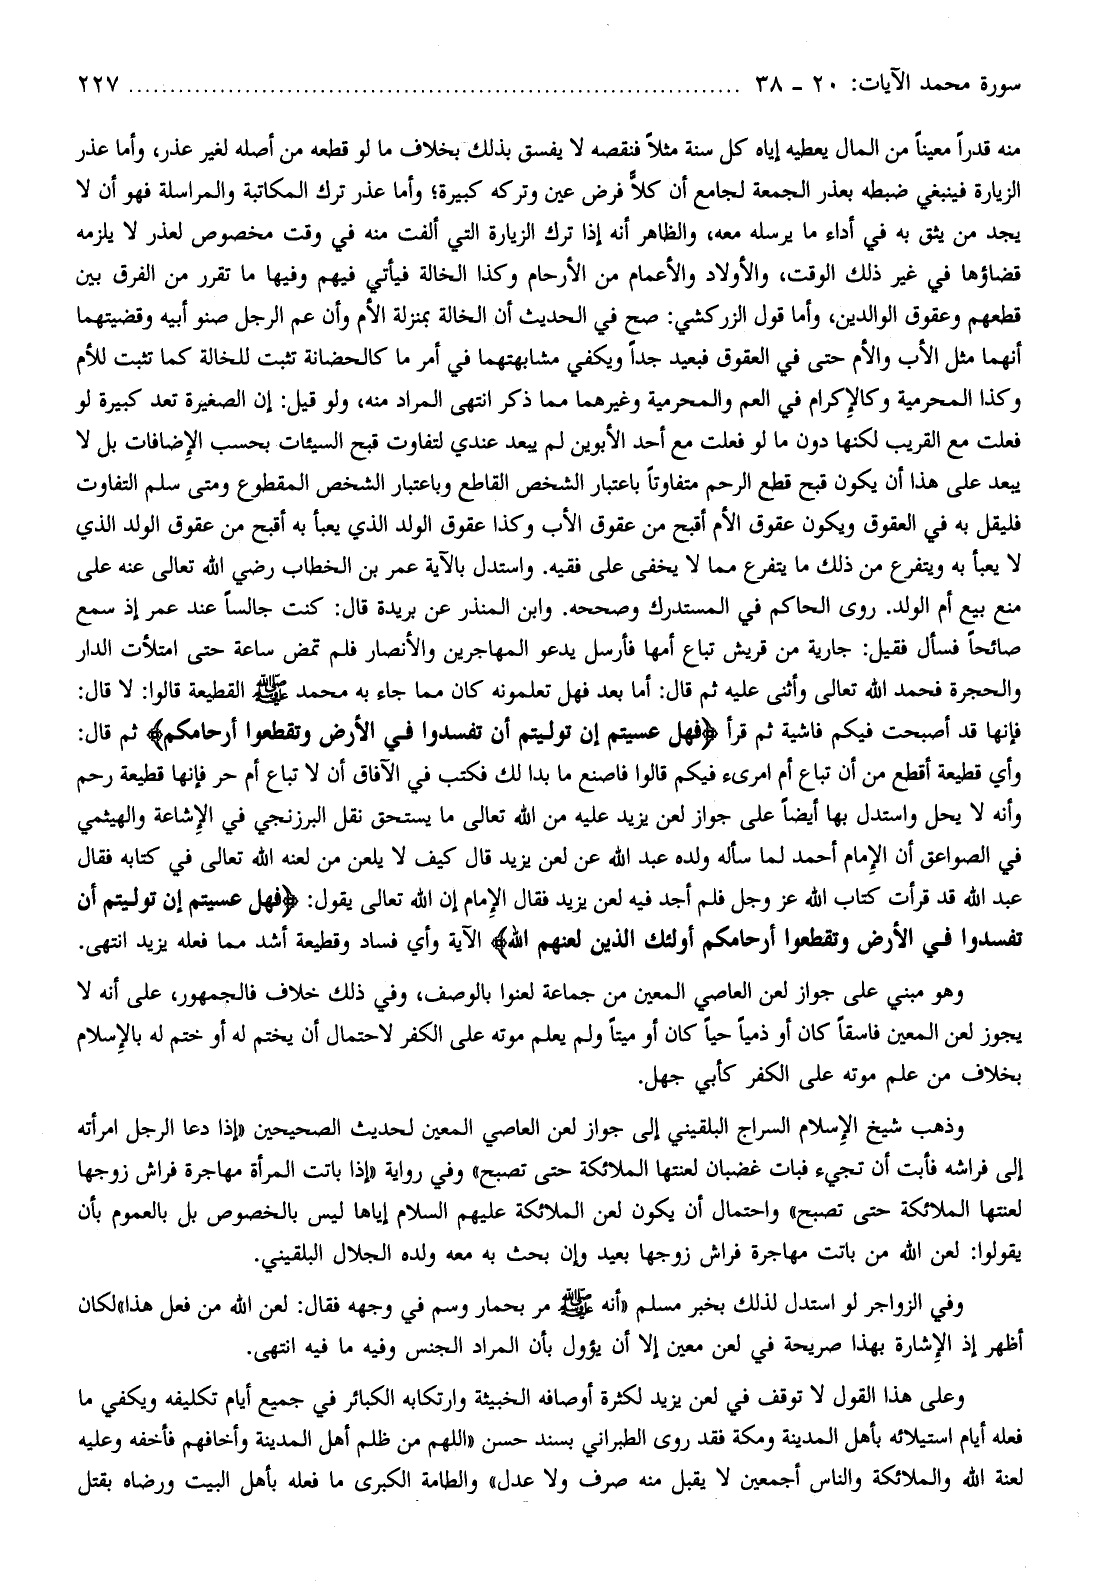 سورة محمد الآيات: ٢٠ ـ ٣٨ ........................................................................ ٢٢٧
منه قدراً معيناً من المال يعطيه إياه كل سنة مثلاً فنقصه لا يفسق بذلك بخلاف ما لو قطعه من أصله لغير عذر، وأما عذر
الزيارة فينبغي ضبطه بعذر الجمعة لجامع أن كلاًّ فرض عين وتركه كبيرة؛ وأما عذر ترك المكاتبة والمراسلة فهو أن لا
يجد من يثق به في أداء ما يرسله معه، والظاهر أنه إذا ترك الزيارة التي ألفت منه في وقت مخصوص لعذر لا يلزمه
قضاؤها في غير ذلك الوقت، والأولاد والأعمام من الأرحام وكذا الخالة فيأتي فيهم وفيها ما تقرر من الفرق بين
قطعهم وعقوق الوالدين، وأما قول الزركشي: صح في الحديث أن الخالة بمنزلة الأم وأن عم الرجل صنو أبيه وقضيتهما
أنهما مثل الأب والأم حتى في العقوق فبعيد جداً ويكفي مشابهتهما في أمر ما كالحضانة تثبت للخالة كما تثبت للأم
وكذا المحرمية وكالإكرام في العم والمحرمية وغيرهما مما ذكر انتهى المراد منه، ولو قيل: إن الصغيرة تعد كبيرة لو
فعلت مع القريب لكنها دون ما لو فعلت مع أحد الأبوين لم يبعد عندي لتفاوت قبح السيئات بحسب الإضافات بل لا
يبعد على هذا أن يكون قبح قطع الرحم متفاوتاً باعتبار الشخص القاطع وباعتبار الشخص المقطوع ومتى سلم التفاوت
فليقل به في العقوق ويكون عقوق الأم أقبح من عقوق الأب وكذا عقوق الولد الذي يعبأ به أقبح من عقوق الولد الذي
لا يعبأ به ويتفرع من ذلك ما يتفرع مما لا يخفى على فقيه. واستدل بالآية عمر بن الخطاب رضي الله تعالى عنه على
منع بيع أم الولد. روى الحاكم في المستدرك وصححه. وابن المنذر عن بريدة قال: كنت جالساً عند عمر إذ سمع
صائحاً فسأل فقيل: جارية من قريش تباع أمها فأرسل يدعو المهاجرين والأنصار فلم تمض ساعة حتى امتلأت الدار
والحجرة فحمد الله تعالى وأثنى عليه ثم قال: أما بعد فهل تعلمونه كان مما جاء به محمد ﷺ القطيعة قالوا: لا قال:
فإنها قد أصبحت فيكم فاشية ثم قرأ ﴿فهل عسيتم إن توليتم أن تفسدوا في الأرض وتقطعوا أرحامكم﴾ ثم قال:
وأي قطيعة أقطع من أن تباع أم امرىء فيكم قالوا فاصنع ما بدا لك فكتب في الآفاق أن لا تباع أم حر فإنها قطيعة رحم
وأنه لا يحل واستدل بها أيضاً على جواز لعن يزيد عليه من الله تعالى ما يستحق نقل البرزنجي في الإشاعة والهيثمي
في الصواعق أن الإمام أحمد لما سأله ولده عبد الله عن لعن يزيد قال كيف لا يلعن من لعنه الله تعالى في كتابه فقال
عبد الله قد قرأت كتاب الله عز وجل فلم أجد فيه لعن يزيد فقال الإمام إن الله تعالى يقول: ﴿فهل عسيتم إن توليتم أن
تفسدوا في الأرض وتقطعوا أرحامكم أولئك الذين لعنهم الله﴾ الآية وأي فساد وقطيعة أشد مما فعله يزيد انتهى.
وهو مبني على جواز لعن العاصي المعين من جماعة لعنوا بالوصف، وفي ذلك خلاف فالجمهور، على أنه لا
يجوز لعن المعين فاسقاً كان أو ذمياً حياً كان أو ميتاً ولم يعلم موته على الكفر لاحتمال أن يختم له أو ختم له بالإسلام
بخلاف من علم موته على الكفر كأبي جهل.
وذهب شيخ الإسلام السراج البلقيني إلى جواز لعن العاصي المعين لحديث الصحيحين «إذا دعا الرجل امرأته
إلى فراشه فأبت أن تجيء فبات غضبان لعنتها الملائكة حتى تصبح» وفي رواية «إذا باتت المرأة مهاجرة فراش زوجها
لعنتها الملائكة حتى تصبح» واحتمال أن يكون لعن الملائكة عليهم السلام إياها ليس بالخصوص بل بالعموم بأن
يقولوا: لعن الله من باتت مهاجرة فراش زوجها بعيد وإن بحث به معه ولده الجلال البلقيني.
وفي الزواجر لو استدل لذلك بخبر مسلم «أنه ﷺ مر بحمار وسم في وجهه فقال: لعن الله من فعل هذا»لكان
أظهر إذ الإشارة بهذا صريحة في لعن معين إلا أن يؤول بأن المراد الجنس وفيه ما فيه انتهى.
وعلى هذا القول لا توقف في لعن يزيد لكثرة أوصافه الخبيثة وارتكابه الكبائر في جميع أيام تكليفه ويكفي ما
فعله أيام استيلائه بأهل المدينة ومكة فقد روى الطبراني بسند حسن «اللهم من ظلم أهل المدينة وأخافهم فأخفه وعليه
لعنة الله والملائكة والناس أجمعين لا يقبل منه صرف ولا عدل» والطامة الكبرى ما فعله بأهل البيت ورضاه بقتل